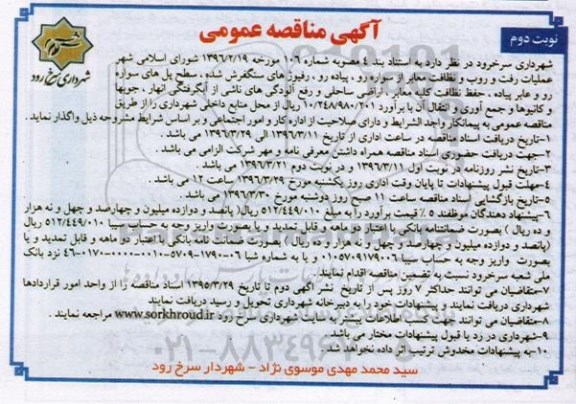 آگهی مناقصه عمومی
نوبت دوم
شهرداری سرخ رود
شهرداری سرخرود در نظر دارد به استناد بند ٤ مصوبه شماره ١٠٦ مورخه ١٣٩٦/٢/١٩ شورای اسلامی شهر
عملیات رفت و روب و نظافت معابر سواره رو، پیاده رو، رفیوژ های سنگفرش شده، سطح پل های سواره
رو و عابر پیاده، حفظ نظافت کلیه معابر، اراضی ساحلی و رفع آلودگی های ناشی از آبگرفتگی انهار، جویها
و کانیوها و جمع آوری و انتقال آن با برآورد ١٠/٢٤٨/٩٨٠/٢٠١ ریال از محل منابع داخلی شهرداری را از طریق
مناقصه عمومی به پیمانکار واجد الشرایط و دارای صلاحیت از اداره کار و امور اجتماعی و بر اساس شرایط مشروحه ذیل واگذار نماید.
١-تاریخ دریافت اسناد مناقصه در ساعت اداری از تاریخ ١٣٩٦/٣/١١ الی ١٣٩٦/٣/٢٩ می باشد.
٢-جهت دریافت حضوری اسناد مناقصه همراه داشتن معرفی نامه و مهر شرکت الزامی می باشد.
٣-تاریخ نشر روزنامه در نوبت اول ١٣٩٦/٣/١١ و در نوبت دوم ١٣٩٦/٣/٢١ می باشد.
٤-مهلت قبول پیشنهادات تا پایان وقت اداری روز یکشنبه مورخ ١٣٩٦/٣/٢٩ ساعت ١٢ می باشد.
٥-تاریخ بازگشایی اسناد مناقصه ساعت ١١ صبح روز دوشنبه مورخ ١٣٩٦/٣/٣٠ می باشد.
٦-پیشنهاد دهندگان موظفند ٥٪ قیمت برآورد را به مبلغ ٥١٢/٤٤٩/٠١٠ ریال (پانصد و دوازده میلیون و چهارصد و چهل و نه هزار
و ده ریال) بصورت ضمانتنامه بانکی با اعتبار دو ماهه و قابل تمدید و یا بصورت واریز وجه به حساب سپرده ٥١٢/٤٤٩/٠١٠ ریال
(پانصد و دوازده میلیون و چهارصد و چهل و نه هزار و ده ریال) بصورت ضمانت نامه بانکی با اعتبار دو ماهه و قابل تمدید و یا
بصورت واریز وجه به حساب سیبا ٠١٠٥٧٠٩١٧٩٠٠٦ و یا به شماره شبا نزد بانک
ملی شعبه سرخرود نسبت به تضمین مناقصه اقدام نمایند.
٧-متقاضیان می توانند حداکثر ٧ روز پس از تاریخ نشر آگهی دوم تا تاریخ ١٣٩٥/٣/٢٩ اسناد مناقصه را از واحد امور قراردادها
شهرداری دریافت نمایند و پیشنهادات خود را به دبیرخانه شهرداری تحویل و رسید دریافت نمایند
٨-متقاضیان می توانند جهت کسب اطلاعات بیشتر به سایت شهرداری سرخ رود www.sorkhroud.ir مراجعه نمایند.
٩-شهرداری در رد یا قبول پیشنهادات مختار می باشد.
١٠-به پیشنهادات مخدوش ترتیب اثر داده نخواهد شد.
سید محمد مهدی موسوی نژاد - شهردار سرخ رود